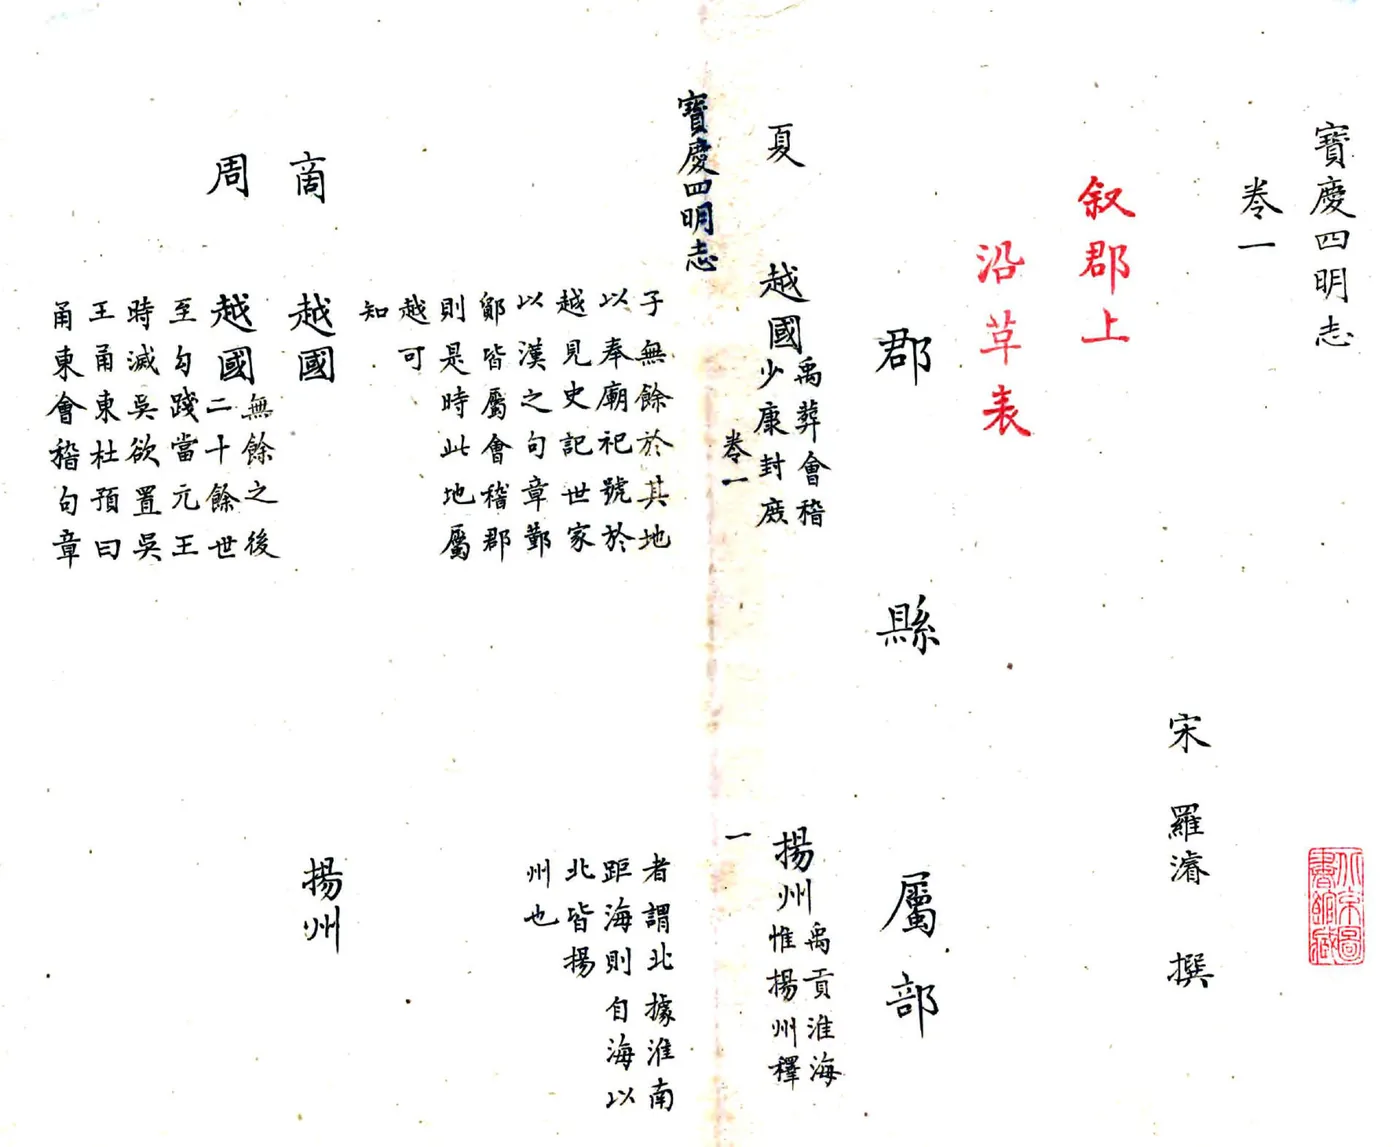 寶慶四明志
卷一
宋 羅濬 撰
叙郡上
沿革表
郡 縣 屬部
夏 越國
禹葬會稽
少康封庶
揚州
禹貢淮海
惟揚州釋
卷一
一
寶慶四明志
子無餘於其地
以奉廟祀號於
越見史記世家
以漢之句章鄞
鄮皆屬會稽郡
則是時此地屬
越可
知
者謂北據淮南
距海則自海以
北皆揚
州也
商 越國 揚州
周 越國
無餘之後
二十餘世
至勾踐當元王
時滅吳欲置吳
王甬東杜預曰
甬東會稽句章